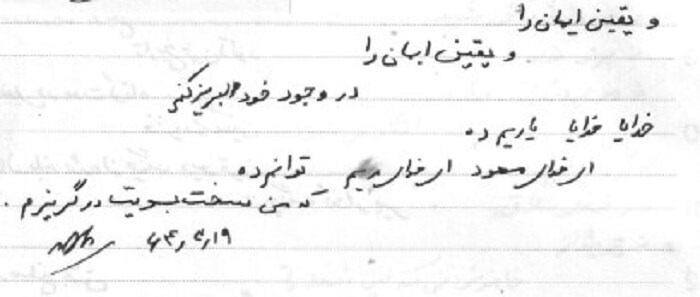 و یقین ایمان را
و یقین ایمان را
در وجود خود لبریز کنم
خدایا خدایا یاریم ده
ای خدای معبود ای خدای رحیم توانم ده
که من سخت بسویت در گریزم .
۶۴٫۴٫۱۹